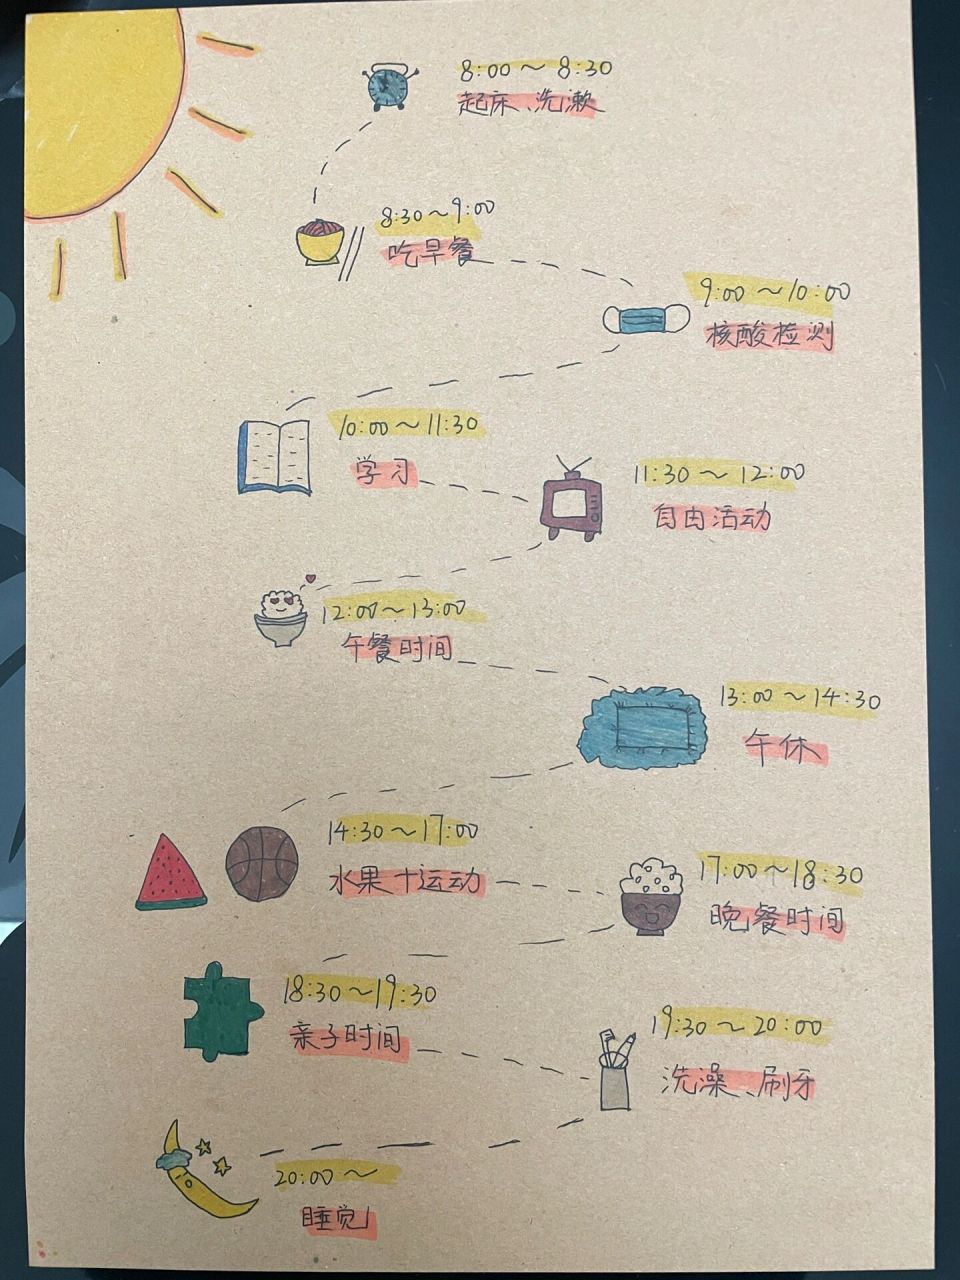 8:00～8:30
起床、洗漱
8:30～9:00
吃早餐
9:00～10:00
核酸检测
10:00～11:30
学习
11:30～12:00
自由活动
12:00～13:00
午餐时间
13:00～14:30
午休
14:30～17:00
水果+运动
17:00～18:30
晚餐时间
18:30～19:30
亲子时间
19:30～20:00
洗澡、刷牙
20:00～
睡觉